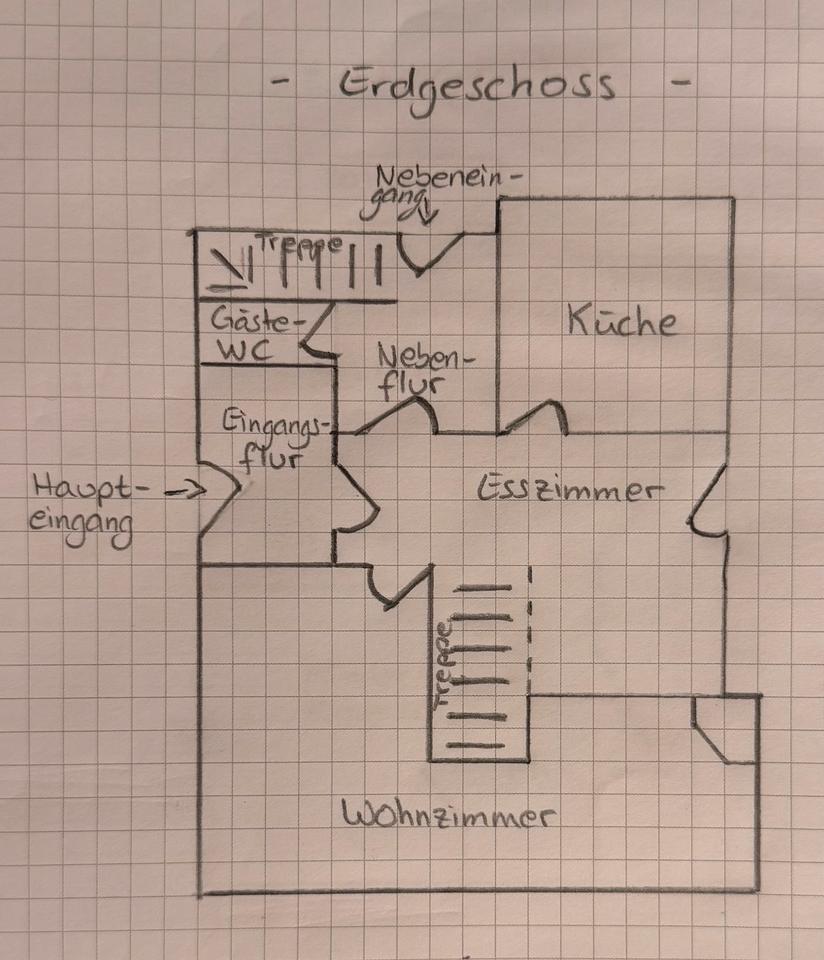 - Erdgeschoss -
Nebenein-
gang
Treppe
Gäste-
WC
Küche
Neben-
flur
Eingangs-
flur
Haupt-
eingang
Esszimmer
Treppe
Wohnzimmer